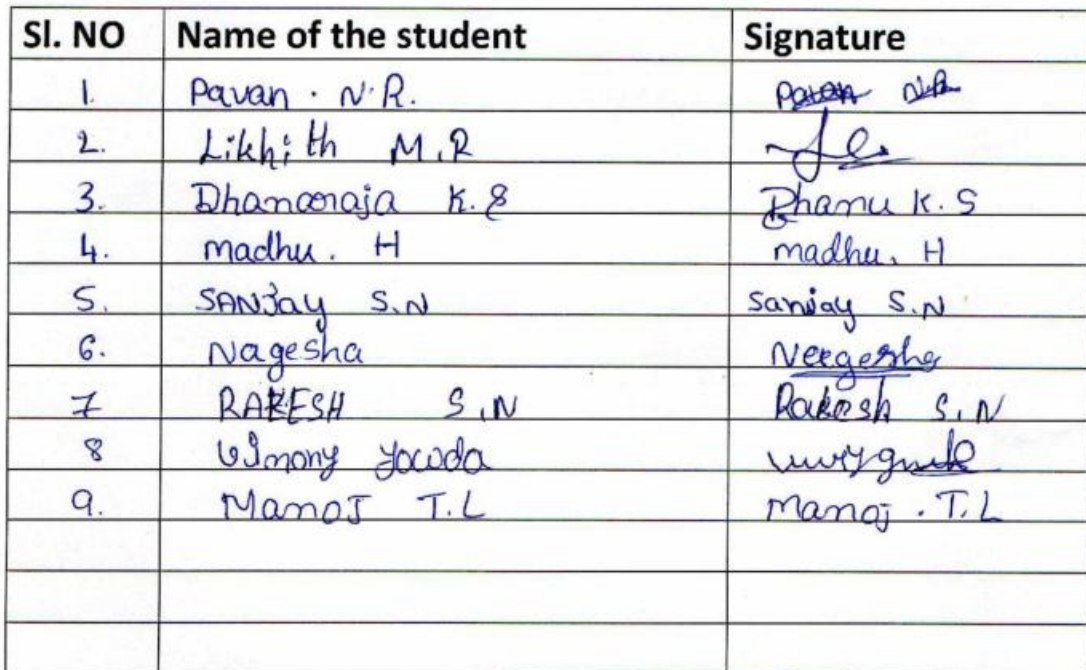 Sl. NO Name of the student Signature
1. Pavan . N.R. Pavan N.R
2. Likhith M.R
3. Dhanaraja K.S Dhanu K.S
4. madhu. H madhu. H
5. SANJay S.N Sanjay S.N
6. Nagesha Nagesha
7 RAKESH S.N Rakesh S.N
8
9. Manoj T.L Manoj . T.L